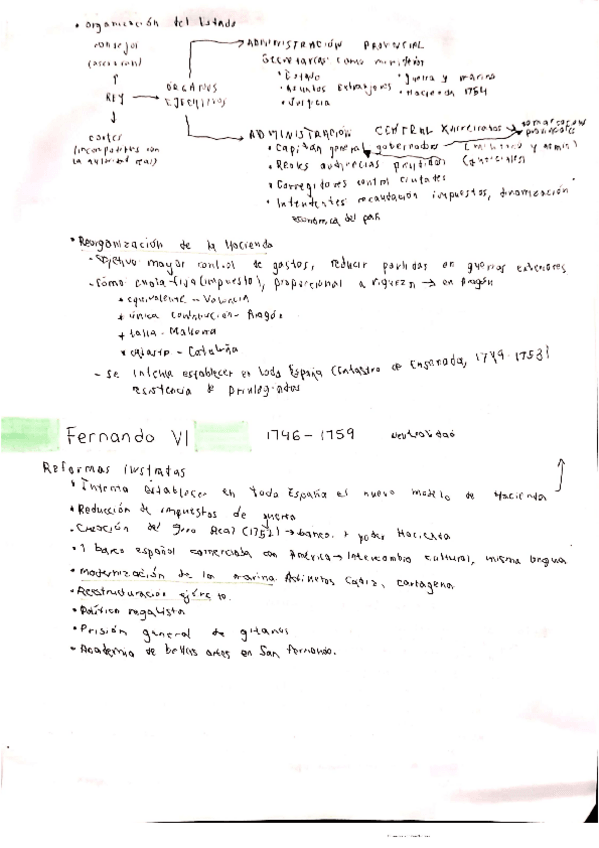 • Organización del Estado
consejos
(asesoran)
↑
REY → ÓRGANOS EJECUTIVOS
↓
cortes
(incorporadas con
la autoridad real)
→ ADMINISTRACIÓN PROVINCIAL
Secretarías como ministerios
• Estado
• Asuntos Extranjeros
• Justicia
• guerra y marina
• Hacienda 1754
→ ADMINISTRACIÓN CENTRAL
• Capitán general gobernador (militar y admin)
• Reales audiencias presididas (judiciales)
• Corregidores control ciudades
• Intendentes recaudación impuestos, dinamización
económica del país
• Reorganización de la Hacienda
- Objetivo mayor control de gastos, reducir partidas en guerras exteriores
- Cómo cuota fija (impuesto), proporcional a riqueza → en Aragón
• equivalente - Valencia
• única contribución - Aragón
• talla - Mallorca
• catastro - Cataluña
- se intenta establecer en toda España (Catastro de Ensenada, 1749-1753)
resistencia de privilegiados
Fernando VI 1746-1759 Neutralidad
Reformas ilustradas
• Intenta establecer en toda España el nuevo modelo de Hacienda
• Reducción de impuestos de guerra
• Creación del Giro Real (1752) → banco. + poder Hacienda
• 1 banco español comerciaba con América → Intercambio cultural, misma lengua
• Modernización de la marina. Astilleros Cádiz, Cartagena
• Reestructuración ejército.
• Política regalista
• Prisión general de gitanos
• Academia de bellas artes en San Fernando.